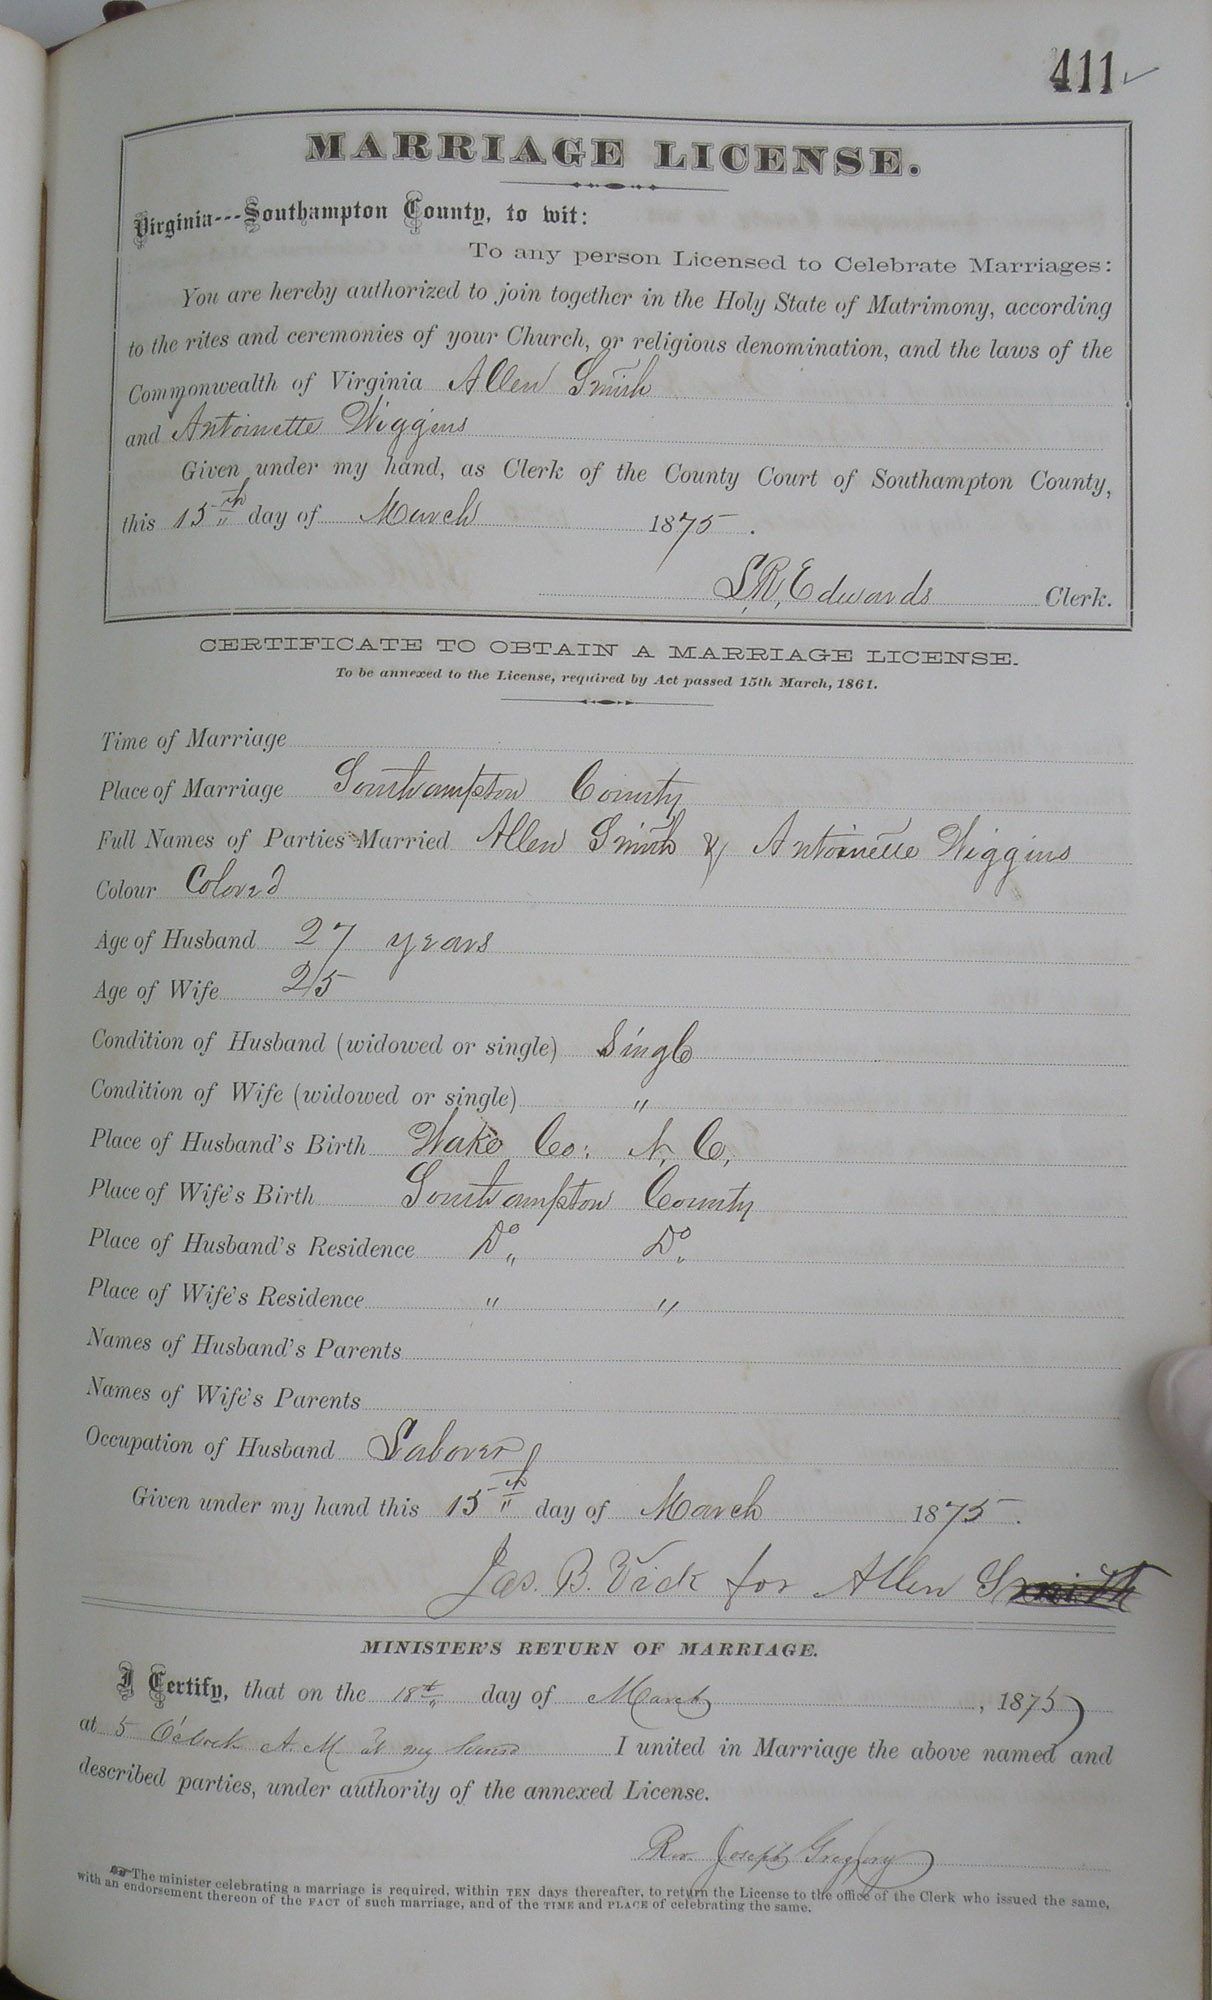 411
MARRIAGE LICENSE.
Virginia---Southampton County, to wit:
To any person Licensed to Celebrate Marriages:
You are hereby authorized to join together in the Holy State of Matrimony, according
to the rites and ceremonies of your Church, or religious denomination, and the laws of the
Commonwealth of Virginia Allen Smith
and Antoinette Wiggins
Given under my hand, as Clerk of the County Court of Southampton County,
this 15th day of March 1875.
L.R. Edwards Clerk.
CERTIFICATE TO OBTAIN A MARRIAGE LICENSE.
To be annexed to the License, required by Act passed 15th March, 1861.
Time of Marriage
Place of Marriage Southampton County
Full Names of Parties Married Allen Smith & Antoinette Wiggins
Colour Colored
Age of Husband 27 years
Age of Wife 25
Condition of Husband (widowed or single) Single
Condition of Wife (widowed or single) "
Place of Husband's Birth Wake Co: N. C.
Place of Wife's Birth Southampton County
Place of Husband's Residence Do Do
Place of Wife's Residence " "
Names of Husband's Parents
Names of Wife's Parents
Occupation of Husband Laborer
Given under my hand this 15th day of March 1875.
Jas. B. Vick for Allen Smith
MINISTER'S RETURN OF MARRIAGE.
I Certify, that on the 18th day of March, 1875
at 5 O'clock A. M at my house I united in Marriage the above named and
described parties, under authority of the annexed License.
Rev. Joseph Gregory
The minister celebrating a marriage is required, within TEN days thereafter, to return the License to the office of the Clerk who issued the same,
with an endorsement thereon of the FACT of such marriage, and of the TIME and PLACE of celebrating the same.